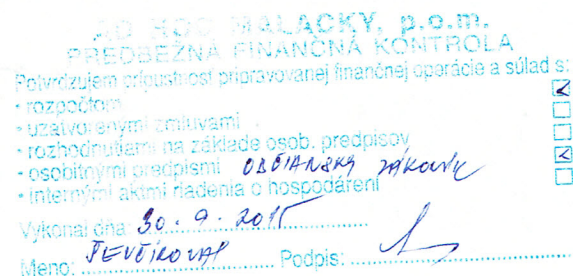 AD HOC MALACKY, p.o.m.
PREDBEŽNÁ FINANČNÁ KONTROLA
Potvrdzujem prípustnosť pripravovanej finančnej operácie a súlad s:
• rozpočtom
• uzatvorenými zmluvami
• rozhodnutiami na základe osob. predpisov
• osobitnými predpismi OBČIANSKY zákonník
• internými aktmi riadenia o hospodárení
Vykonal dňa 30. 9. 2015
Meno: Podpis: